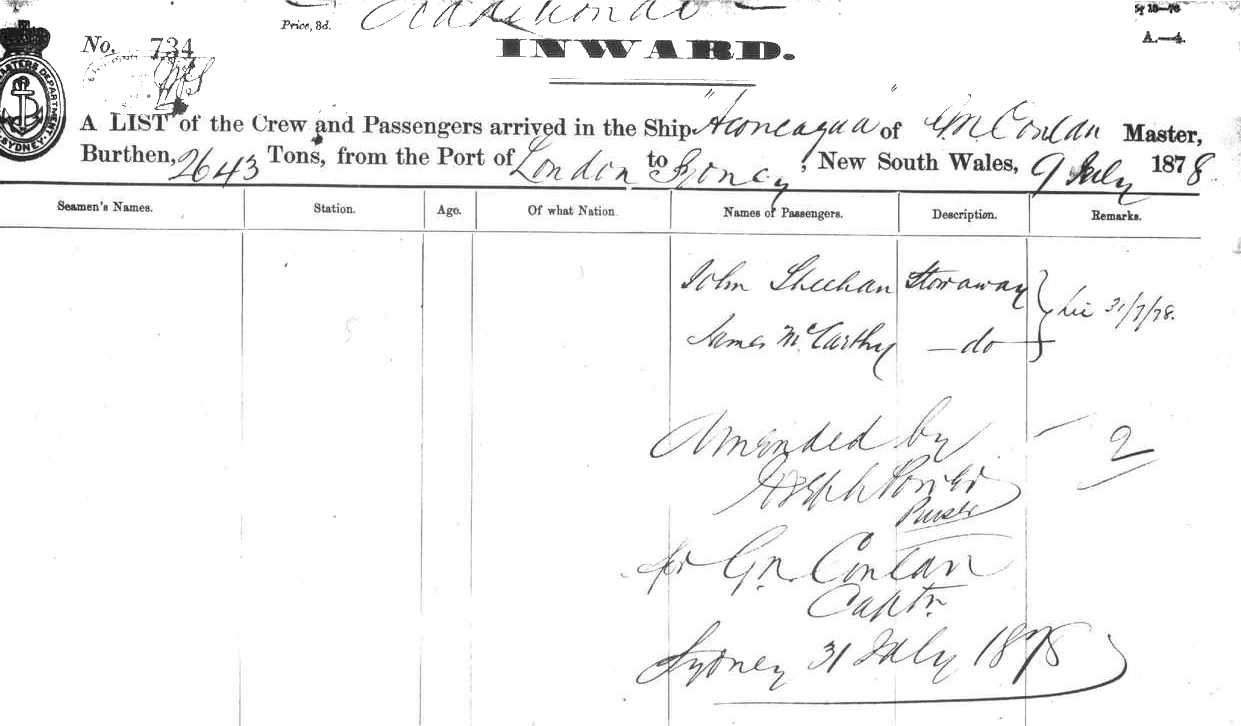 Additional
Price, 3d.
A.—4.
No. 734
INWARD.
A LIST of the Crew and Passengers arrived in the Ship "Aconcagua" of G.N. Conlan Master,
Burthen, 2643 Tons, from the Port of London to Sydney, New South Wales, 9 July 1878.
Seamen's Names. Station. Age. Of what Nation. Names of Passengers. Description. Remarks.
John Sheehan Stowaway
31/7/78.
James McCarthy —do—
Amended by — 2
Joseph Power
Purser
for G.N. Conlan
Captn.
Sydney 31 July 1878